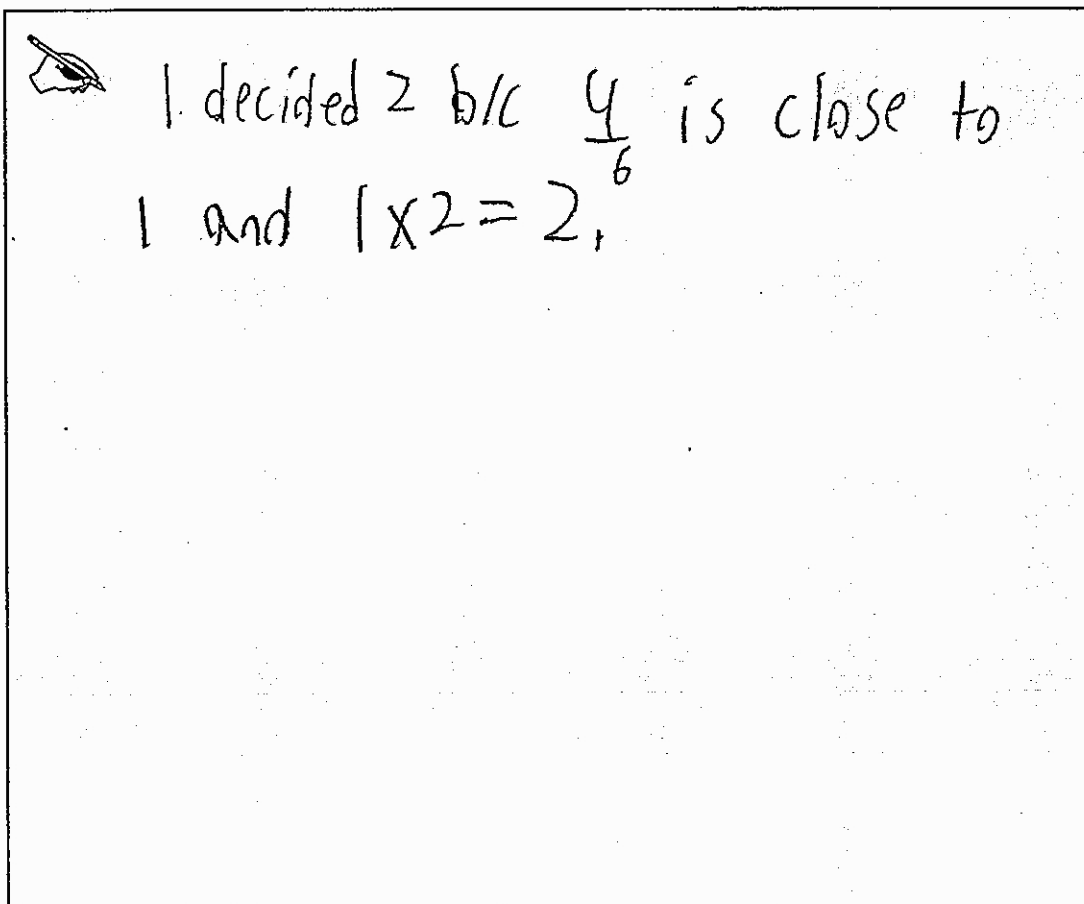 I decided 2 b/c 4/6 is close to
1 and 1x2=2.